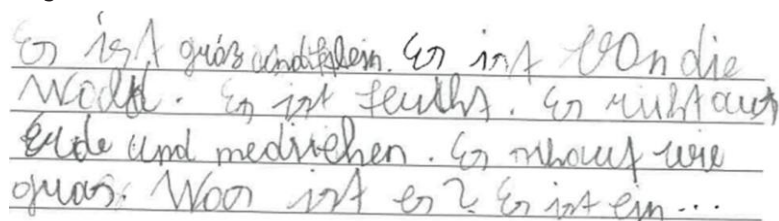 Es ist gräs und klein. Es ist von die
Wold. Es ist feucht. Es richt aus
Erde und medischen. Es schaut wie
gras. Was ist es? Es ist ein...